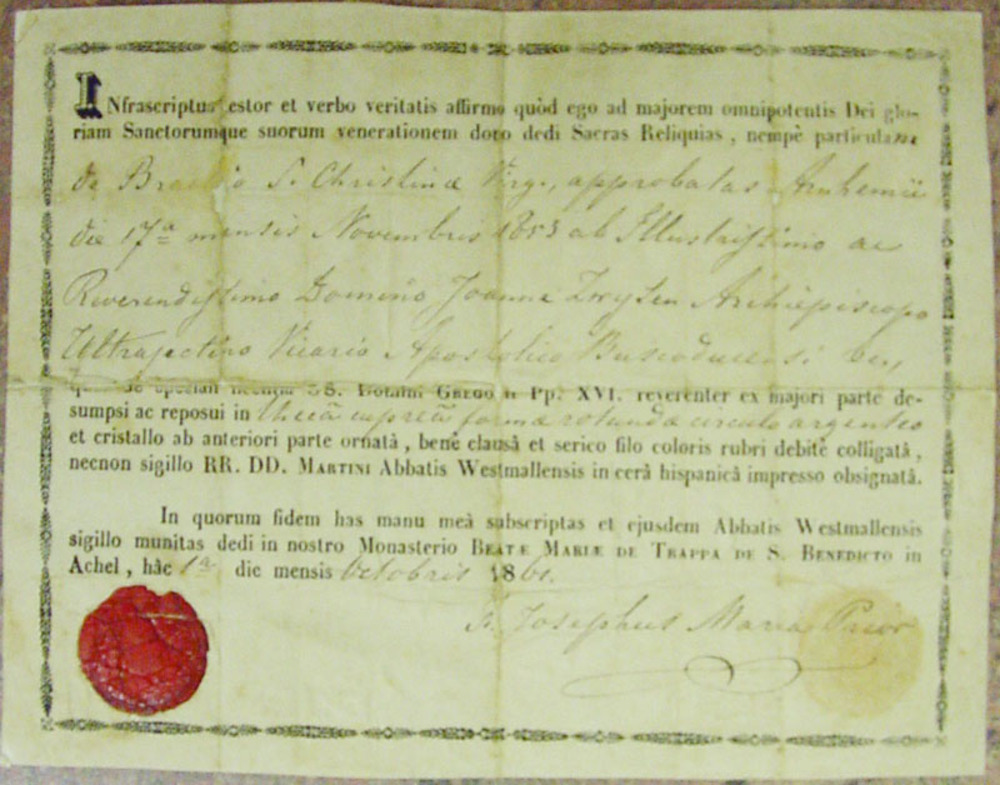 INfrascriptus testor et verbo veritatis affirmo quòd ego ad majorem omnipotentis Dei glo-
riam Sanctorumque suorum venerationem dono dedi Sacras Reliquias, nempè particulam
de Brachio S. Christinæ Virg., approbatas Arnhemii
die 17ª mensis Novembris 1853 ab Illustrissimo ac
Reverendissimo Domino Joanne Zwysen Archiepiscopo
Ultrajectino Vicario Apostolico Buscoducensi
de speciali licentia SS. Domini GREGORII Pp. XVI. reverenter ex majori parte de-
sumpsi ac reposui in thecâ cupreâ forma rotunda circulo argenteo
et cristallo ab anteriori parte ornatâ, benè clausâ et serico filo coloris rubri debitè colligatâ,
necnon sigillo RR. DD. MARTINI Abbatis Westmallensis in cerâ hispanicâ impresso obsignatâ.
In quorum fidem has manu meâ subscriptas et ejusdem Abbatis Westmallensis
sigillo munitas dedi in nostro Monasterio BEATÆ MARIÆ DE TRAPPA DE S. BENEDICTO in
Achel, hâc 1ª die mensis Octobris 1861.
F. Josephus Maria Prior